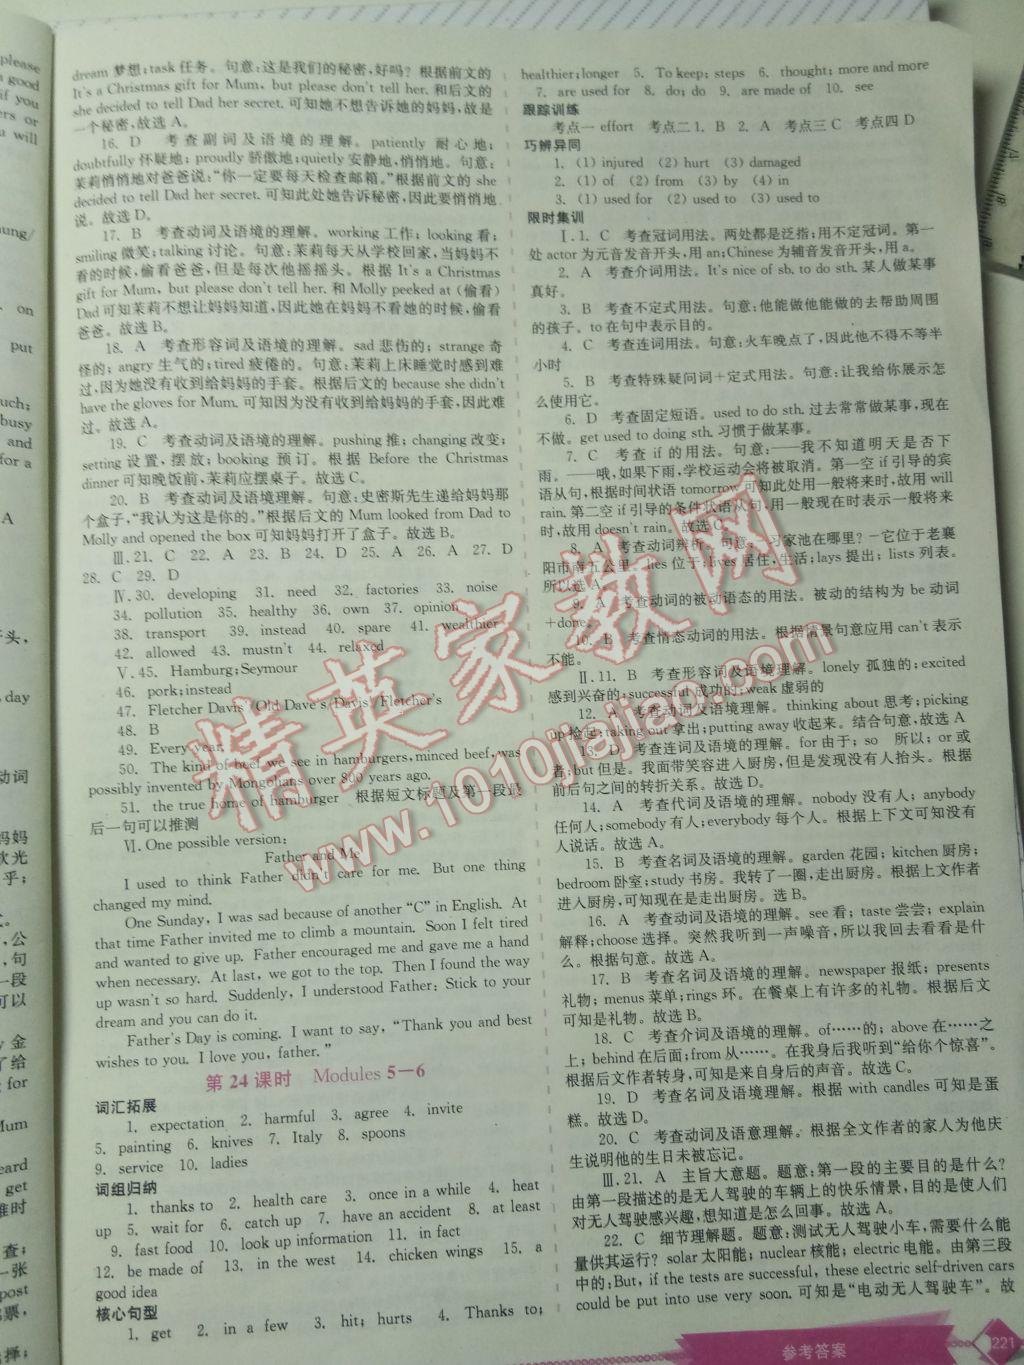 dream 梦想;task 任务。句意:这是我们的秘密,好吗? 根据前文的
It's a Christmas gift for Mum, but please don't tell her. 和后文的
she decided to tell Dad her secret. 可知她不想告诉她的妈妈,故是
一个秘密,故选 A。
16. D 考查副词及语境的理解。patiently 耐心地;
doubtfully 怀疑地;proudly 骄傲地;quietly 安静地,悄悄地。句意:
茉莉悄悄地对爸爸说:“你一定要每天检查邮箱。”根据前文的 she
decided to tell Dad her secret. 可知此处她告诉秘密,因此要悄悄地
说。故选 D。
17. B 考查动词及语境的理解。working 工作; looking 看;
smiling 微笑;talking 讨论。句意:茉莉每天从学校回家,当妈妈不
看的时候,偷看爸爸,但是每次他摇摇头。根据 It's a Christmas
gift for Mum, but please don't tell her. 和 Molly peeked at (偷看)
Dad 可知茉莉不想让妈妈知道,因此她在妈妈不看她的时候,偷看
爸爸。故选 B。
18. A 考查形容词及语境的理解。sad 悲伤的; strange 奇
怪的; angry 生气的;tired 疲倦的。句意:茉莉上床睡觉时感到难
过,因为她没有收到给妈妈的手套。根据后文的 because she didn't
have the gloves for Mum. 可知因为没有收到给妈妈的手套,因此难
过。故选 A。
19. C 考查动词及语境的理解。pushing 推; changing 改变;
setting 设置,摆放; booking 预订。根据 Before the Christmas
dinner 可知晚饭前,茉莉应摆桌子。故选 C。
20. B 考查动词及语境理解。句意:史密斯先生递给妈妈那
个盒子,“我认为这是你的。”根据后文的 Mum looked from Dad to
Molly and opened the box 可知妈妈打开了盒子。故选 B。
Ⅲ. 21. C 22. A 23. B 24. D 25. A 26. A 27. D
28. C 29. D
Ⅳ. 30. developing 31. need 32. factories 33. noise
34. pollution 35. healthy 36. own 37. opinion
38. transport 39. instead 40. spare 41. wealthier
42. allowed 43. mustn't 44. relaxed
Ⅴ. 45. Hamburg; Seymour
46. pork; instead
47. Fletcher Davis'/Old Dave's/Davis'/Fletcher's
48. B
49. Every year.
50. The kind of beef we see in hamburgers, minced beef, was
possibly invented by Mongolians over 800 years ago.
51. the true home of hamburger 根据短文标题及第一段最
后一句可以推测
Ⅵ. One possible version:
Father and Me
I used to think Father didn't care for me. But one thing
changed my mind.
One Sunday, I was sad because of another “C” in English. At
that time Father invited me to climb a mountain. Soon I felt tired
and wanted to give up. Father encouraged me and gave me a hand
when necessary. At last, we got to the top. Then I found the way
up wasn't so hard. Suddenly, I understood Father: Stick to your
dream and you can do it.
Father's Day is coming. I want to say, “Thank you and best
wishes to you. I love you, father.”
第 24 课时 Modules 5—6
词汇拓展
1. expectation 2. harmful 3. agree 4. invite
5. painting 6. knives 7. Italy 8. spoons
9. service 10. ladies
词组归纳
1. thanks to 2. health care 3. once in a while 4. heat
up 5. wait for 6. catch up 7. have an accident 8. at least
9. fast food 10. look up information 11. in fact
12. be made of 13. in the west 14. chicken wings 15. a
good idea
核心句型
1. get 2. in a few 3. hit; hurts 4. Thanks to;
healthier; longer 5. To keep; steps 6. thought; more and more
7. are used for 8. do; do 9. are made of 10. see
跟踪训练
考点一 effort 考点二 1. B 2. A 考点三 C 考点四 D
巧辨异同
1. (1) injured (2) hurt (3) damaged
2. (1) of (2) from (3) by (4) in
3. (1) used for (2) used to (3) used to
限时集训
Ⅰ. 1. C 考查冠词用法。两处都是泛指;用不定冠词。第一
处 actor 为元音发音开头,用 an;Chinese 为辅音发音开头,用 a。
2. A 考查介词用法。It's nice of sb. to do sth. 某人做某事
真好。
3. B 考查不定式用法。句意:他能做他能做的去帮助周围
的孩子。to 在句中表示目的。
4. C 考查连词用法。句意:火车晚点了,因此他不得不等半
小时
5. B 考查特殊疑问词+定式用法。句意:让我给你展示怎
么使用它。
6. D 考查固定短语。used to do sth. 过去常常做某事,现在
不做。get used to doing sth. 习惯于做某事。
7. C 考查 if 的用法。句意:——我不知道明天是否下
雨。——哦,如果下雨,学校运动会将被取消。第一空 if 引导的宾
语从句,根据时间状语 tomorrow 可知此处用一般将来时,故用 will
rain. 第二空 if 引导的条件状语从句,用一般现在时表示一般将来
时,故用 doesn't rain。故选 C。
8. A 考查动词辨析。句意:—习家池在哪里? —它位于老襄
阳市南五公里。lies 位于;lives 居住,生活;lays 提出; lists 列表。
所以选 A。
9. A 考查动词的被动语态的用法。被动的结构为 be 动词
+done。
10. B 考查情态动词的用法。根据情景句意应用 can't 表示
不能。
Ⅱ. 11. B 考查形容词及语境理解。lonely 孤独的;excited
感到兴奋的;successful 成功的;weak 虚弱的
12. A 考查动词及语境理解。thinking about 思考; picking
up 捡起;taking out 拿出;putting away 收起来。结合句意,故选 A
13. D 考查连词及语境的理解。for 由于; so 所以; or 或
者;but 但是。我面带笑容进入厨房,但是发现没有人抬头。根据
前后句之间的转折关系。故选 D。
14. A 考查代词及语境的理解。nobody 没有人; anybody
任何人;somebody 有人;everybody 每个人。根据上下文可知没有
人说话。故选 A。
15. B 考查名词及语境的理解。garden 花园; kitchen 厨房;
bedroom 卧室;study 书房。我转了一圈,走出厨房。根据上文作者
进入厨房,可知现在是走出厨房。选 B。
16. A 考查动词及语境的理解。see 看; taste 尝尝; explain
解释;choose 选择。突然我听到一声噪音,所以我回去看看是什
么。根据句意。故选 A。
17. B 考查名词及语境的理解。newspaper 报纸; presents
礼物; menus 菜单;rings 环。在餐桌上有许多的礼物。根据后文
可知是礼物。故选 B。
18. C 考查介词及语境的理解。of……的; above 在……之
上; behind 在后面;from 从……。在我身后我听到“给你个惊喜”。
根据后文作者转身,可知是来自身后的声音。故选 C。
19. D 考查名词及语境理解。根据 with candles 可知是蛋
糕。故选 D。
20. C 考查动词及语意理解。根据全文作者的家人为他庆
生说明他的生日未被忘记。
Ⅲ. 21. A 主旨大意题。题意:第一段的主要目的是什么?
由第一段描述的是无人驾驶的车辆上的快乐情景,目的是使人们
对无人驾驶感兴趣,想知道是怎么回事。故选 A。
22. C 细节理解题。题意:测试无人驾驶小车,需要什么能
量供其运行? solar 太阳能; nuclear 核能; electric 电能。由第三段
中的:But, if the tests are successful, these electric self-driven cars
could be put into use very soon. 可知是“电动无人驾驶车”。故
参考答案
221
精英家教网
www.1010jiajiao.com